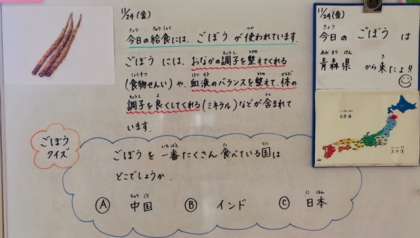 11/29(金)
今日の給食には、ごぼうが使われています。
ごぼうには、おなかの調子を整えてくれる
(食物せんい)や、血液のバランスを整えて、体の
調子を良くしてくれる(ミネラル)などが含まれて
います。
11/29(金)
今日のごぼうは
青森県から来たよ!!
ごぼう
クイズ
ごぼうを一番たくさん食べている国は
どこでしょうか。
Ⓐ 中国 Ⓑ インド Ⓒ 日本